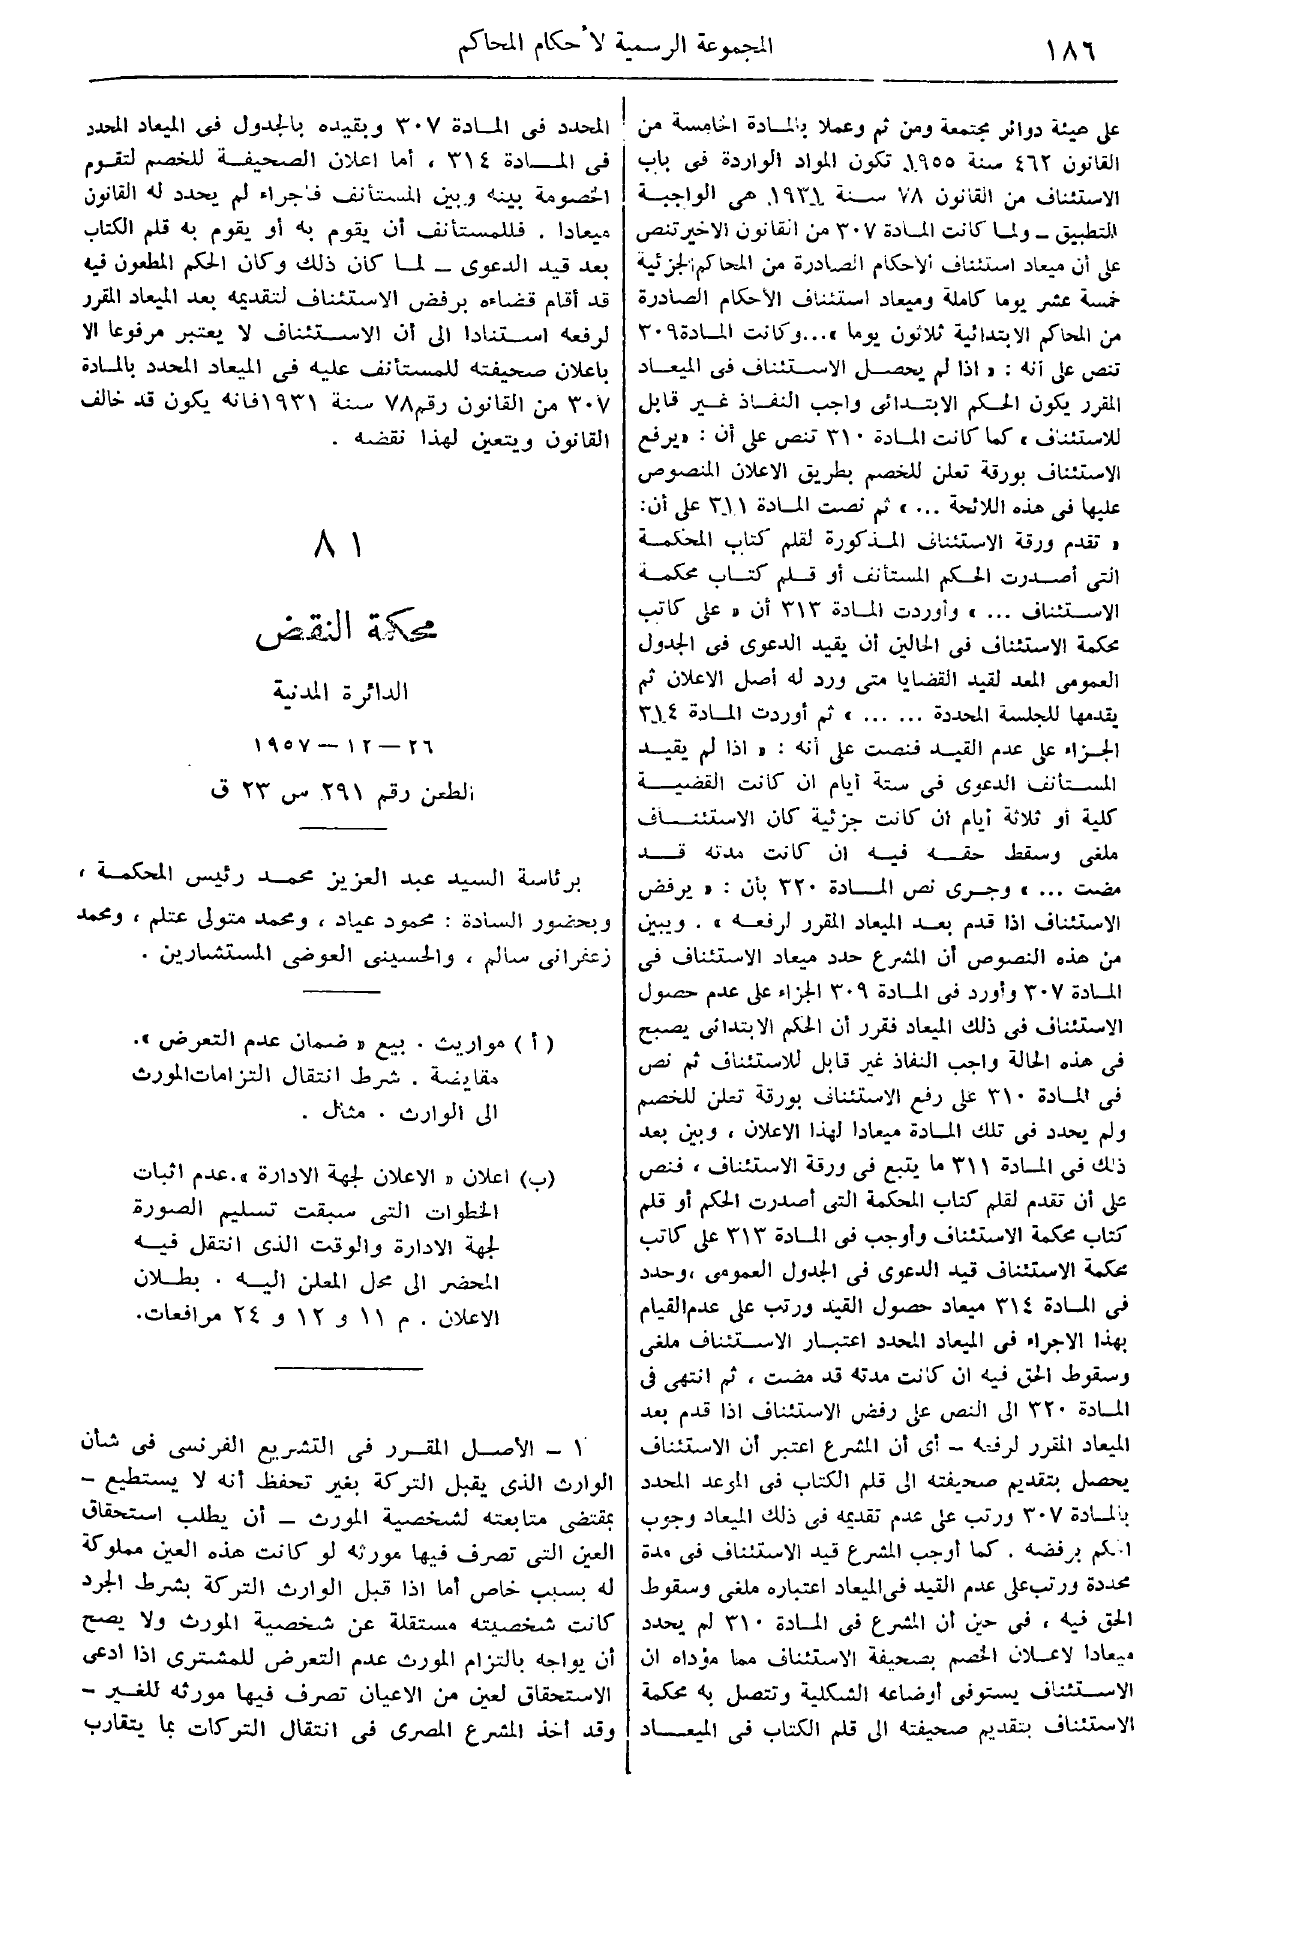 ١٨٦
المجموعة الرسمية لأحكام المحاكم
على هيئة دوائر مجتمعة ومن ثم وعملا بالمادة الخامسة من
القانون ٤٦٢ سنة ١٩٥٥ تكون المواد الواردة فى باب
الاستئناف من القانون ٧٨ سنة ١٩٣١ هى الواجبة
التطبيق ــ ولما كانت المادة ٣٠٧ من القانون الاخير تنص
على أن ميعاد استئناف الأحكام الصادرة من المحاكم الجزئية
خمسة عشر يوما كاملة وميعاد استئناف الأحكام الصادرة
من المحاكم الابتدائية ثلاثون يوما »...وكانت المادة ٣٠٩
تنص على أنه : « اذا لم يحصل الاستئناف فى الميعاد
المقرر يكون الحكم الابتدائى واجب النفاذ غير قابل
للاستئناف » كما كانت المادة ٣١٠ تنص على أن : «يرفع
الاستئناف بورقة تعلن للخصم بطريق الاعلان المنصوص
عليها فى هذه اللائحة ... » ثم نصت المادة ٣١١ على أن:
« تقدم ورقة الاستئناف المذكورة لقلم كتاب المحكمة
التى أصدرت الحكم المستأنف أو قلم كتاب محكمة
الاستئناف ... » وأوردت المادة ٣١٣ أن « على كاتب
محكمة الاستئناف فى الحالين أن يقيد الدعوى فى الجدول
العمومى المعد لقيد القضايا متى ورد له أصل الاعلان ثم
يقدمها للجلسة المحددة ... ... » ثم أوردت المادة ٣١٤
الجزاء على عدم القيد فنصت على أنه : « اذا لم يقيد
المستأنف الدعوى فى ستة أيام ان كانت القضية
كلية أو ثلاثة أيام ان كانت جزئية كان الاستئناف
ملغى وسقط حقه فيه ان كانت مدته قد
مضت ... » وجرى نص المادة ٣٢٠ بأن : « يرفض
الاستئناف اذا قدم بعد الميعاد المقرر لرفعه » . ويبين
من هذه النصوص أن المشرع حدد ميعاد الاستئناف فى
المادة ٣٠٧ وأورد فى المادة ٣٠٩ الجزاء على عدم حصول
الاستئناف فى ذلك الميعاد فقرر أن الحكم الابتدائى يصبح
فى هذه الحالة واجب النفاذ غير قابل للاستئناف ثم نص
فى المادة ٣١٠ على رفع الاستئناف بورقة تعلن للخصم
ولم يحدد فى تلك المادة ميعادا لهذا الاعلان ، وبين بعد
ذلك فى المادة ٣١١ ما يتبع فى ورقة الاستئناف ، فنص
على أن تقدم لقلم كتاب المحكمة التى أصدرت الحكم أو قلم
كتاب محكمة الاستئناف وأوجب فى المادة ٣١٣ على كاتب
محكمة الاستئناف قيد الدعوى فى الجدول العمومى ،وحدد
فى المادة ٣١٤ ميعاد حصول القيد ورتب على عدم القيام
بهذا الاجراء فى الميعاد المحدد اعتبار الاستئناف ملغى
وسقوط الحق فيه ان كانت مدته قد مضت ، ثم انتهى فى
المادة ٣٢٠ الى النص على رفض الاستئناف اذا قدم بعد
الميعاد المقرر لرفعه ــ أى أن المشرع اعتبر أن الاستئناف
يحصل بتقديم صحيفته الى قلم الكتاب فى الموعد المحدد
بالمادة ٣٠٧ ورتب على عدم تقديمه فى ذلك الميعاد وجوب
الحكم برفضه . كما أوجب المشرع قيد الاستئناف فى مدة
محددة ورتب على عدم القيد فى الميعاد اعتباره ملغى وسقوط
الحق فيه ، فى حين أن المشرع فى المادة ٣١٠ لم يحدد
ميعادا لاعلان الخصم بصحيفة الاستئناف مما مؤداه ان
الاستئناف يستوفى أوضاعه الشكلية وتتصل به محكمة
الاستئناف بتقديم صحيفته الى قلم الكتاب فى الميعاد
المحدد فى المادة ٣٠٧ وبقيده بالجدول فى الميعاد المحدد
فى المادة ٣١٤ ، أما اعلان الصحيفة للخصم لتقوم
الخصومة بينه وبين المستأنف فاجراء لم يحدد له القانون
ميعادا . فللمستأنف أن يقوم به أو يقوم به قلم الكتاب
بعد قيد الدعوى ــ لما كان ذلك وكان الحكم المطعون فيه
قد أقام قضاءه برفض الاستئناف لتقديمه بعد الميعاد المقرر
لرفعه استنادا الى أن الاستئناف لا يعتبر مرفوعا الا
باعلان صحيفته للمستأنف عليه فى الميعاد المحدد بالمادة
٣٠٧ من القانون رقم ٧٨ سنة ١٩٣١ فانه يكون قد خالف
القانون ويتعين لهذا نقضه .
٨١
محكمة النقض
الدائرة المدنية
٢٦ — ١٢ — ١٩٥٧
الطعن رقم ٢٩١ س ٢٣ ق
برئاسة السيد عبد العزيز محمد رئيس المحكمة ،
وبحضور السادة : محمود عياد ، ومحمد متولى عتلم ، ومحمد
زعفرانى سالم ، والحسينى العوضى المستشارين .
( أ ) مواريث . بيع « ضمان عدم التعرض ».
مقايضة . شرط انتقال التزامات المورث
الى الوارث . مثال .
(ب) اعلان « الاعلان لجهة الادارة ».عدم اثبات
الخطوات التى سبقت تسليم الصورة
لجهة الادارة والوقت الذى انتقل فيه
المحضر الى محل المعلن اليه . بطلان
الاعلان . م ١١ و ١٢ و ٢٤ مرافعات.
١ ــ الأصل المقرر فى التشريع الفرنسى فى شأن
الوارث الذى يقبل التركة بغير تحفظ أنه لا يستطيع ــ
بمقتضى متابعته لشخصية المورث ــ أن يطلب استحقاق
العين التى تصرف فيها مورثه لو كانت هذه العين مملوكة
له بسبب خاص أما اذا قبل الوارث التركة بشرط الجرد
كانت شخصيته مستقلة عن شخصية المورث ولا يصح
أن يواجه بالتزام المورث عدم التعرض للمشترى اذا ادعى
الاستحقاق لعين من الاعيان تصرف فيها مورثه للغير ــ
وقد أخذ المشرع المصرى فى انتقال التركات بما يتقارب